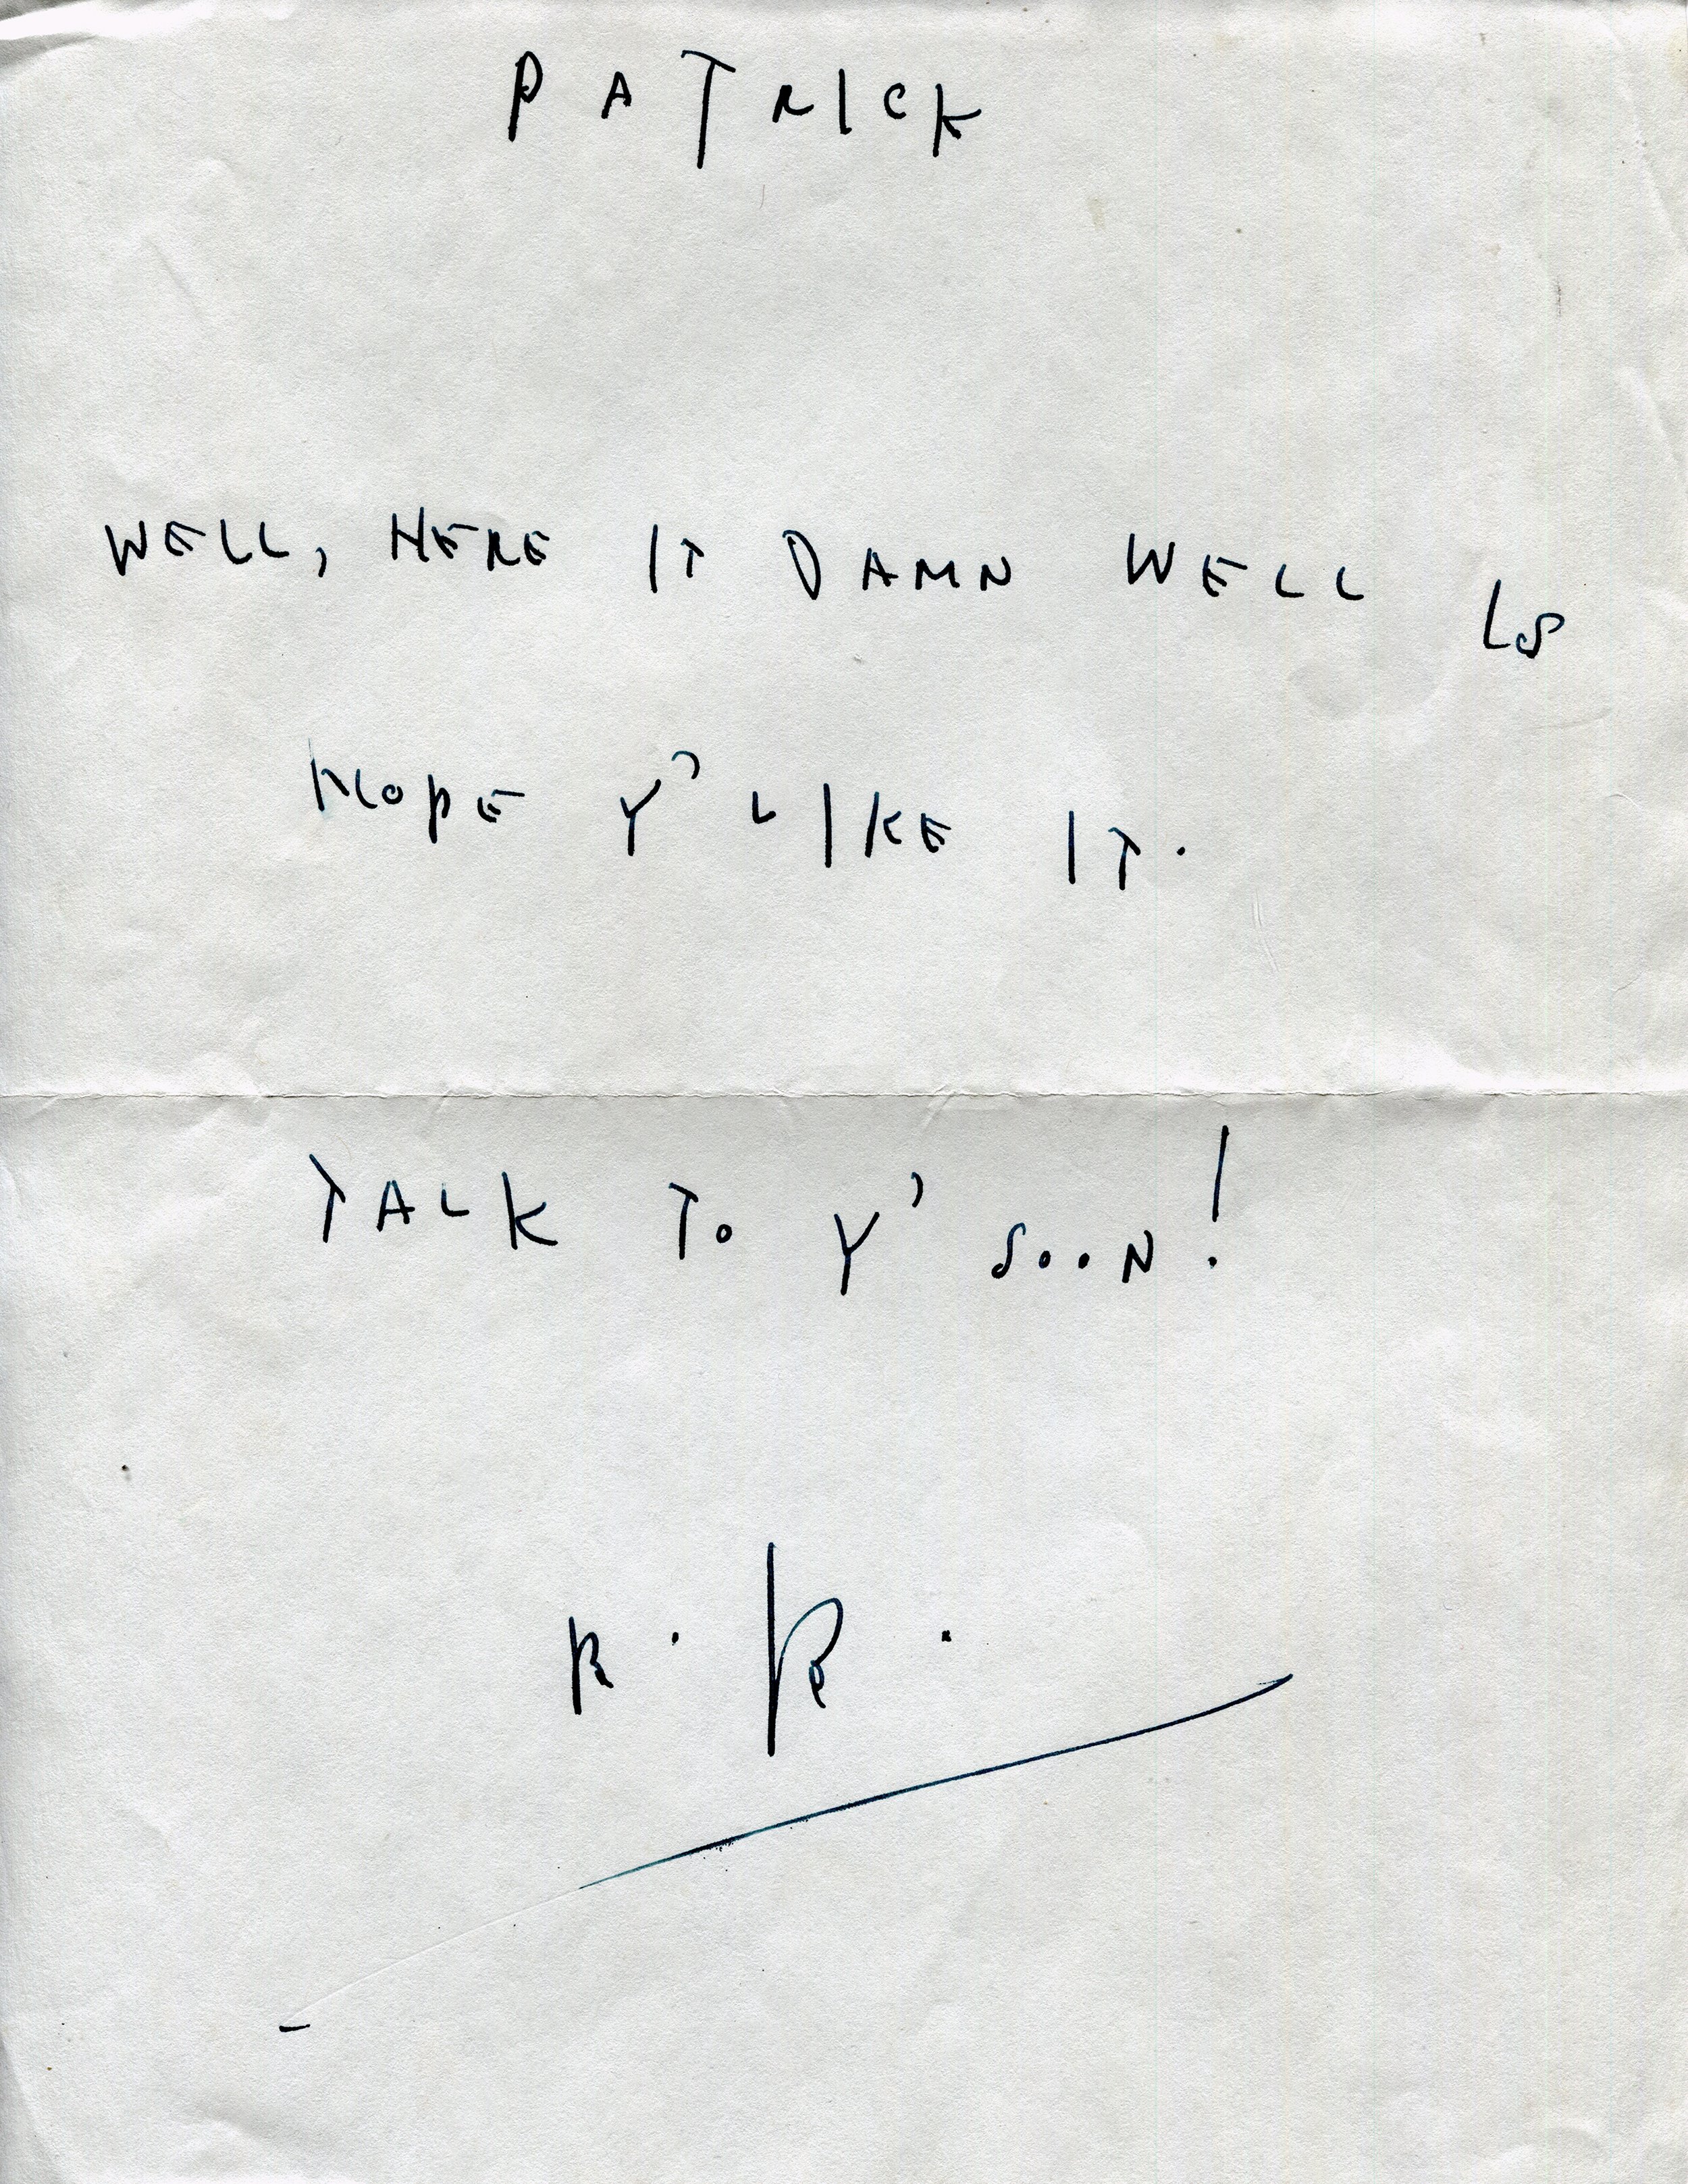 PATRICK
WELL, HERE IT DAMN WELL IS
HOPE Y' LIKE IT.
TALK TO Y' SOON!
R. R.